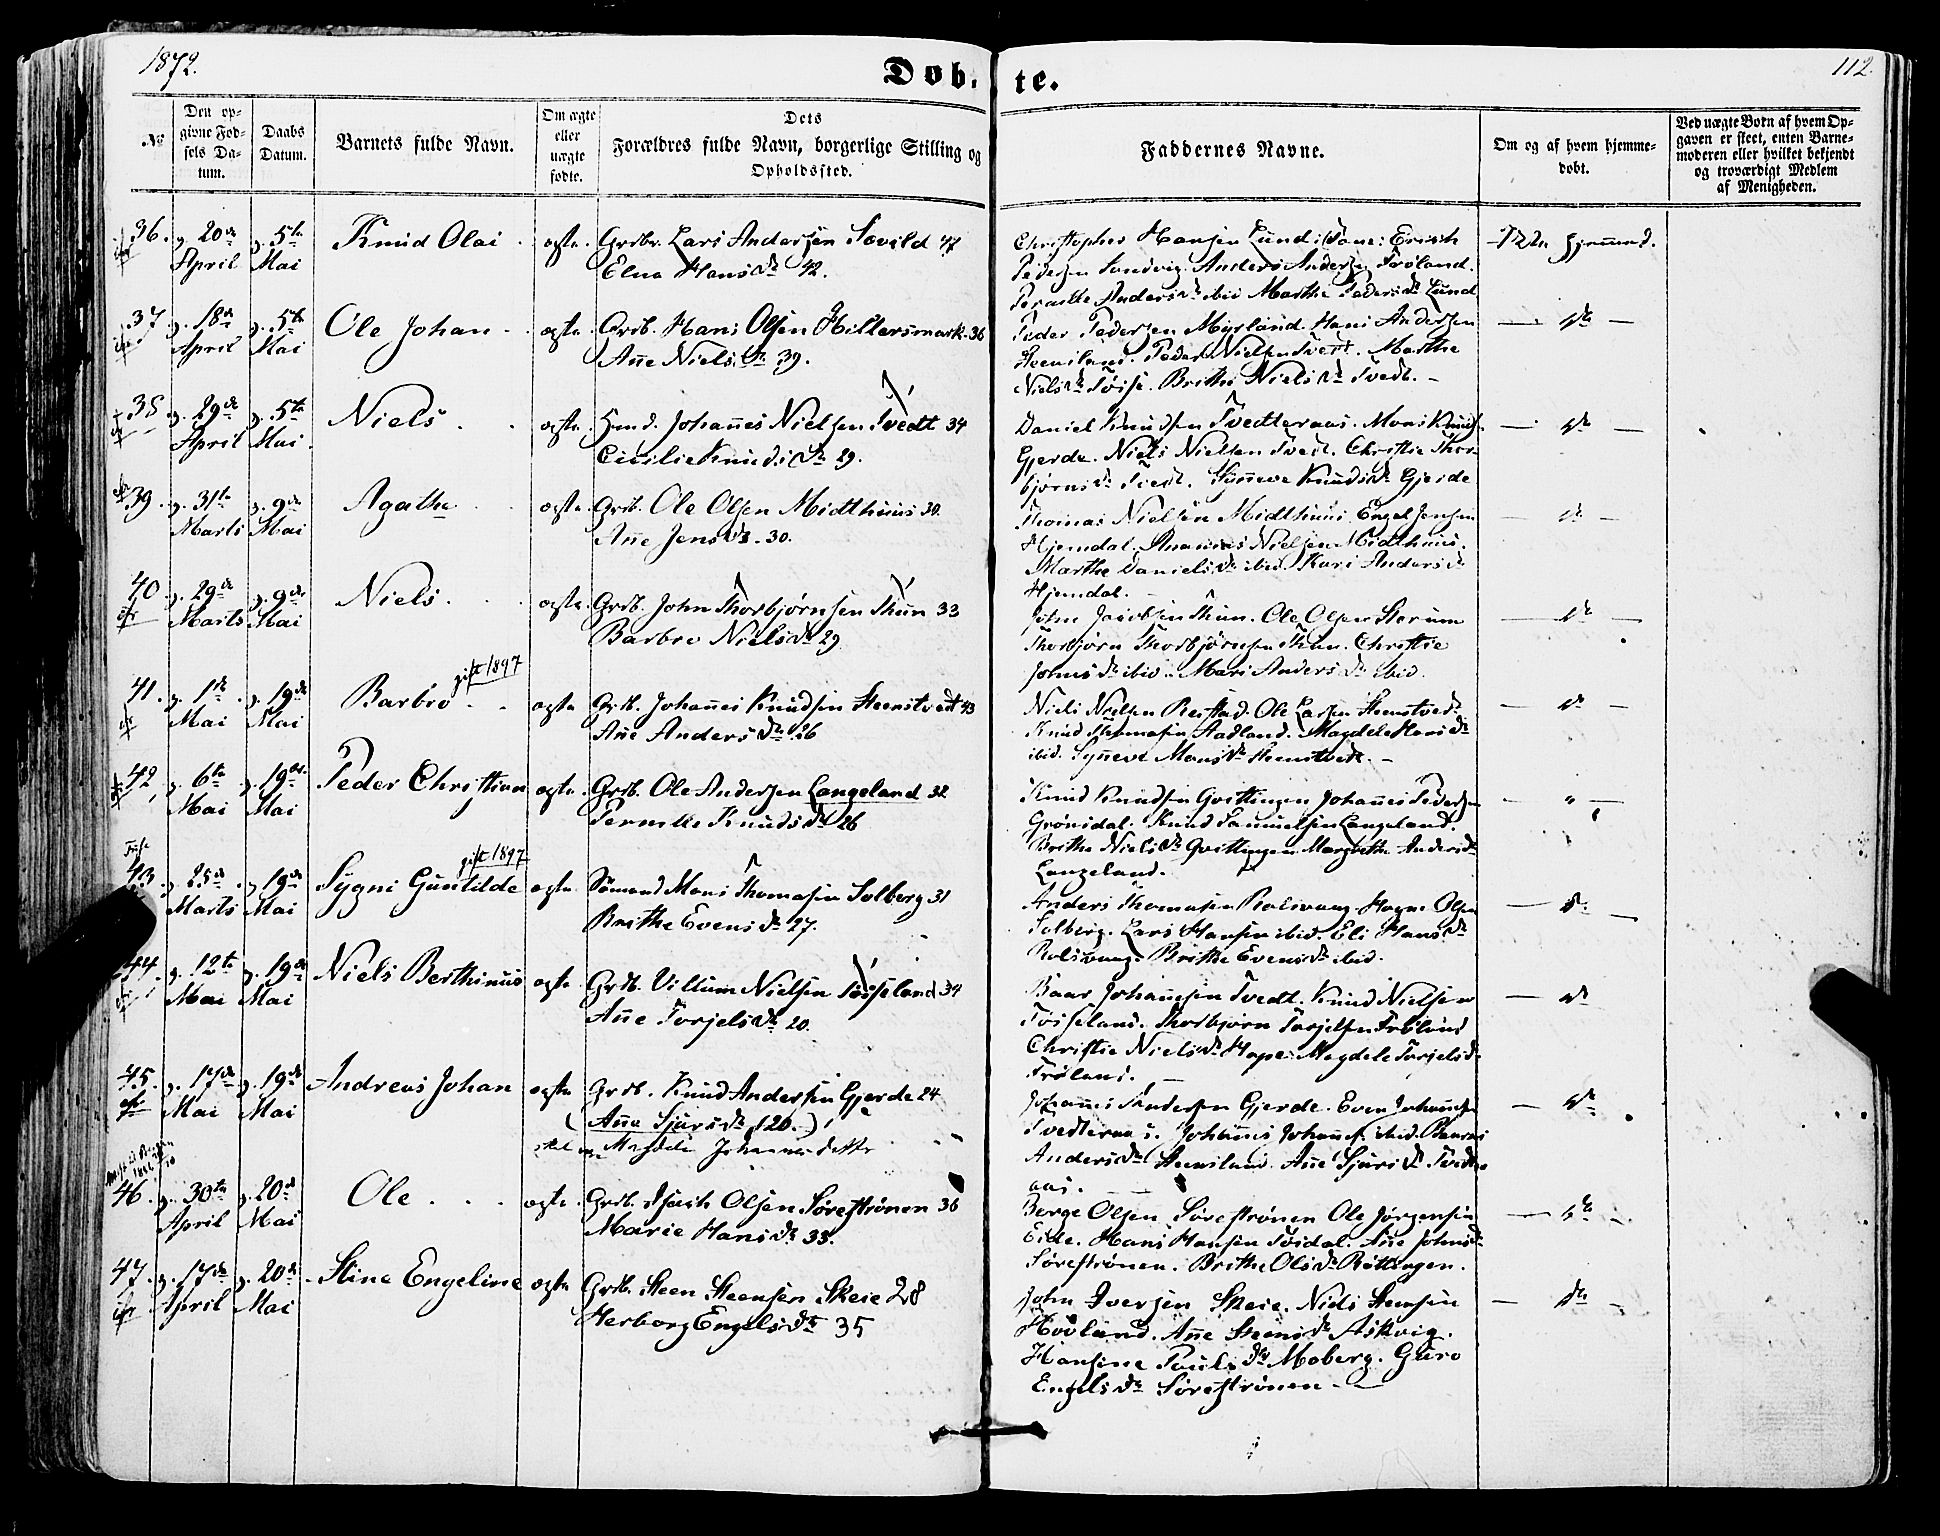 1872.
Dob-te.
112.
No
Den opgivne Fødsels Datum.
Daabs Datum.
Barnets fulde Navn.
Om ægte eller uægte fødte.
Dets Forældres fulde Navn, borgerlige Stilling og Opholdssted.
Faddernes Navne.
Om og af hvem hjemmedøbt.
Ved uægte Børn af hvem Opgaven er skeet, enten Barnemoderen eller hvilket bekjendt og troværdigt Medlem af Menigheden.
36. 20de April 5te Mai Knud Olai ægte Grdbr. Lars Andersen Sævild 47
Elna Hansdr 42.
Christopher Hansen Lund
Pedersen Sandvig. Anders Andersen Frøland.
Pernille Andersdr ibid Marthe Pedersdr Lund
37 18de April 5te Mai Ole Johan ægte Grdb. Hans Olsen Hillersmark 36
Ane Nielsdr 39.
Peder Pedersen Myrland. Hans Andersen
Steensland. Peder Nielsen Tvedt. Marthe
Nielsdr Tøise. Brithe Nielsdr Tvedt.
38 29de April 5te Mai Niels ægte Johanes Nielsen Tvedt 34
Cicilie Knudsdr 29.
Daniel Knudsen Tvedteraas. Mons Knuds.
Gjerde. Niels Nielsen Tvedt. Christie Thor-
bjørnsdr Tvedt. Synneve Knudsdr Gjerde
39 31te Marts 9de Mai Agathe ægte Grdb. Ole Olsen Midthuus 30
Ane Jensdr 30.
Thomas Nielsen Midthuus. Engel Jensen
Hjemdal. Nielsen Midthuus.
Marthe Danielsdr ibid. Kari Andersdr
Hjemdal.
40 29de Marts 9de Mai Niels ægte Grdb. John Thorbjørnsen Thun 33
Barbro Nielsdr 29
John Jacobsen Thun. Ole Olsen Skerum
Thorbjørn Thorbjørnsen Thun. Christie
Johnsdr ibid. Mari Andersdr ibid.
gift 1897
41. 1de Mai 19de Mai Barbro ægte Grdb. Johanes Knudsen Steenstvedt 43
Ane Andersdr 26
Niels Nielsen Restad. Ole Larsen Steenstvedt
Knud Thomasen Aadland. Magdele Hansdr
ibid. Synneve Monsdr Steenstvedt.
42 6te Mai 19de Mai Peder Christian ægte Grdb. Ole Andersen Langeland 32
Pernille Knudsdr 26
Knud Knudsen Gvittingen Johanes Pedersen
Grønsdal. Knud Samuelsen Langeland.
Brithe Nielsdr Gvittingen Margrethe Andersdr
Langeland.
gift 1897
43. 25de Marts 19de Mai Sygni Guntilde ægte Sømand Mons Thomasen Solberg 31
Brithe Evensdr 27.
Anders Thomasen Rolsvaag. Hagen Olsen
Solberg. Lars Hansen ibid. Eli Hansdr
Rolsvaag. Brithe Evensdr ibid.
44. 12te Mai 19de Mai Niels Berthinus ægte Grdb. Villum Nielsen Tøsseland 34
Ane Torjelsdr 20.
Baar Johannesen Tvedt. Knud Nielsen
Tøsseland. Thorbjørn Torjelsen Frøland
Christie Nielsdr Hope. Magdele Torjelsdr
Frøland.
45. 17de Mai 19de Mai Andreas Johan ægte Grdb. Knud Andersen Gjerde 24
(Ane Sjursdr 120.)
Magdeli Johannesdatter
Johannes Andersen Gjerde. Even Johannesen
Tvedteraas. Johannes Johannes. ibid.
Andersdr Steensland. Ane Sjursdr Tvedter
aas.
46. 30te April 20de Mai Ole ægte Grdb. Isach Olsen Sørestrønen 36
Marie Hansdr 33.
Børge Olsen Sørestrønen Ole Jørgensen
Eide. Hans Hansen Tøsdal. Ane Johnsdr
Sørestrønen. Brithe Olsdr Røttingen.
47. 17de April 20de Mai Stine Engeline ægte Grdb. Steen Steensen Skeie 28
Herborg Engelsdr 35
John Iversen Skeie. Niels Steensen
Hovland. Ane Steensdr Askvig.
Hansine Paulsdr Moberg. Guro
Engelsdr Sørestrønen.